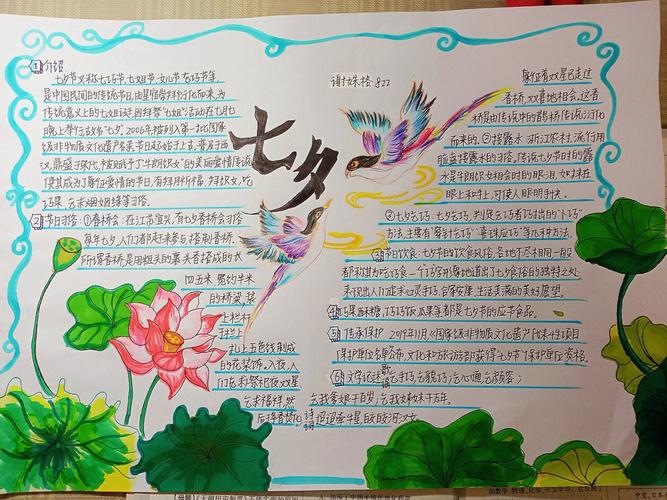 ①介绍
七夕节又称七巧节、七姐节、女儿节、乞巧节等，
是中国民间的传统节日，由星宿崇拜衍化而来，为
传统意义上的七姐诞，因拜祭"七姐"活动在七月七
晚上举行，故名"七夕"。2006年，被列入第一批国家
级非物质文化遗产名录。节日起始于上古，普及于西
汉，鼎盛于宋代，被赋予了牛郎织女的美丽爱情传说，
使其成为了象征爱情的节日，有拜月祈福、拜织女、吃
巧果、乞求姻缘等习俗。
②节日习俗：①香桥会：在江苏宜兴，有七夕香桥会习俗
每年七夕，人们都赶来参与，搭制香桥。
所谓香桥，是用粗长的裹头香搭成的长
四五米、宽约半米
的桥梁，装
上栏杆
于栏杆
扎上五色线制成
的花装饰。入夜，人
们祭祀双星
乞求福祥，然
后将香桥焚化
七夕
谢姝格 822
象征着双星已走过
香桥，欢喜地相会。这香
桥是由传说中的鹊桥传说衍化
而来的。②接露水：浙江农村，流行用
脸盆接露水的习俗。传说七夕节时的露
水是牛郎织女相会时的眼泪，如抹在
眼上和手上，可使人眼明手快。
③七夕乞巧：七夕乞巧，
方法，主要有"穿针乞巧""喜蛛应巧"等几种方法。
③节日饮食：七夕节的饮食风俗，各地不尽相同，一般
都称其为吃巧食
来祝出人们追求心灵手巧、合家安康、生活美满的美好愿望。
④巧果、酥糖、巧巧饭、瓜果等都是七夕节的应节食品。
⑤传承保护：2019年11月《国家级非物质文化遗产代表性项目
保护单位名单》公布，文化和旅游部获得"七夕节"保护单位资格。
⑥文学记述：歌谣 乞手巧，乞貌巧；乞心通，乞颜容；
乞我爹娘千百岁，乞我姊妹千万年。
诗词 迢迢牵牛星，皎皎河汉女。